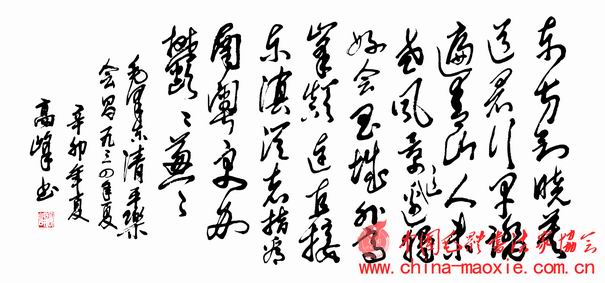 东方欲晓莫
道君行早踏
遍青山人未
老风景这边独
好会昌城外高
峰颠连直接
东溟战士指看
南粤更加
郁〻葱〻
毛泽东清平樂
会昌一九三四年夏
辛卯年夏
高峰书
中国毛体书法家协会
www.china-maoxie.com.cn